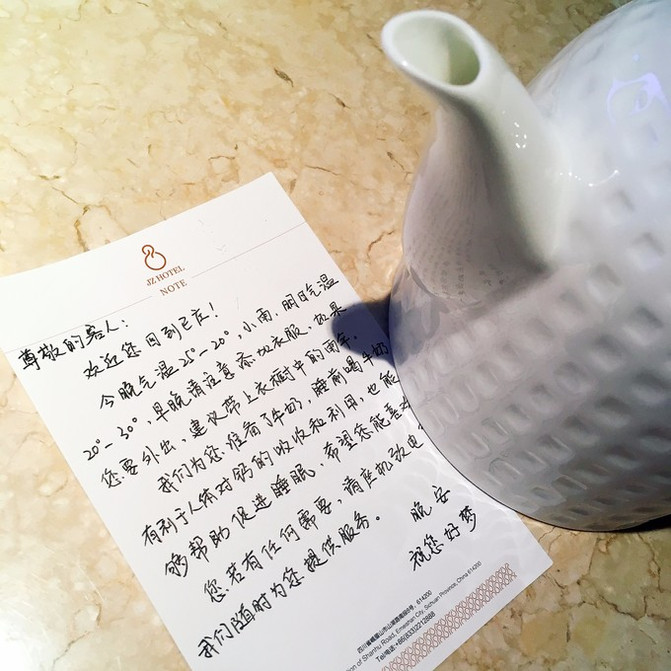 JZ HOTEL
NOTE
尊敬的客人:
欢迎您回到已庄!
今晚气温25°-20°,小雨,明日气温
20°-30°,早晚请注意添加衣服,如果
您要外出,建议带上衣橱中的雨伞。
我们为您准备了牛奶,睡前喝牛奶
有利于人体对钙的吸收和利用,也能
够帮助促进睡眠,希望您能喜欢
您若有任何需要,请座机致电
我们随时为您提供服务。
晚安
祝您好梦
四川省峨眉山市山湖路南段8号, 614200
ion of Shanhu Road, Emeishan City, Sichuan Province, China 614200
Tel/电话:+86(833)2212888